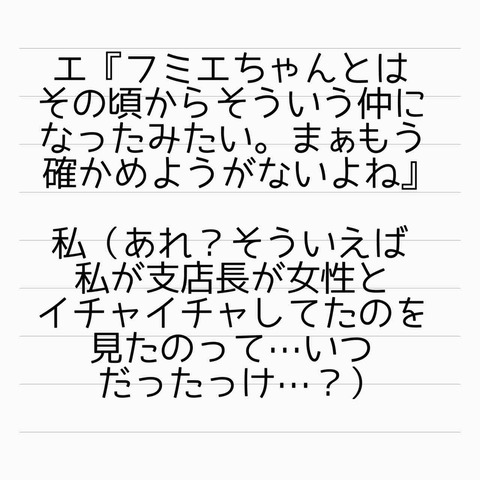 エ『フミエちゃんとは
その頃からそういう仲に
なったみたい。まぁもう
確かめようがないよね』
私（あれ？そういえば
私が支店長が女性と
イチャイチャしてたのを
見たのって…いつ
だったっけ…？）